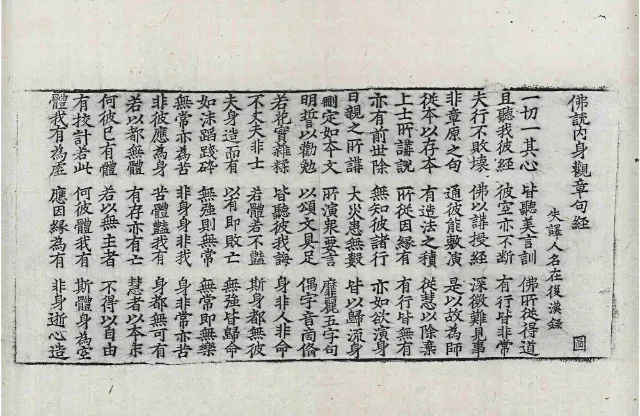 佛說內身觀章句經
失譯人名在後漢錄 圖
一切一其心 皆聽美言訓 佛所從得道
且聽我彼經 彼空亦不斷 有行皆非常
夫行不敗壞 佛以講授經 深微難見事
非章原之句 通彼能數演 是以故為師
從本以存本 有造法之積 從慧以除棄
上士所講說 所從因緣有 有行皆無有
亦有前世除 無知彼諸行 亦如欲演身
日親之所講 大災患無數 皆以歸流身
刪定如本文 所演衆要言 靡麗五字句
明哲以勸勉 以頌文具足 偶字音商脩
若花實雜糅 皆聽彼我誨 身非人非命
不丈夫非士 若體若不豔 斯身都無彼
夫身造而有 以有即敗亡 無強皆歸命
如沫蹈踐碎 無強則無常 無常即無樂
無常亦為苦 非身身非我 身非常亦苦
非彼應為身 苦體豔我有 身都無可有
若以都無體 有存亦有亡 慧者以本末
何彼已有體 若以無主者 不得以自由
有挍計若此 何彼體我有 斯體身為空
體我有為虛 應因緣為有 非身逝心造